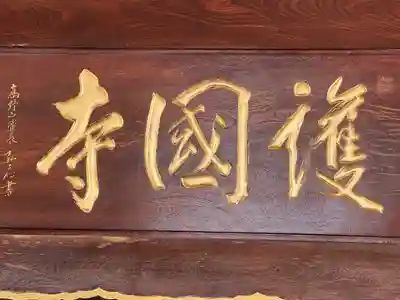 護國寺
高野山管長